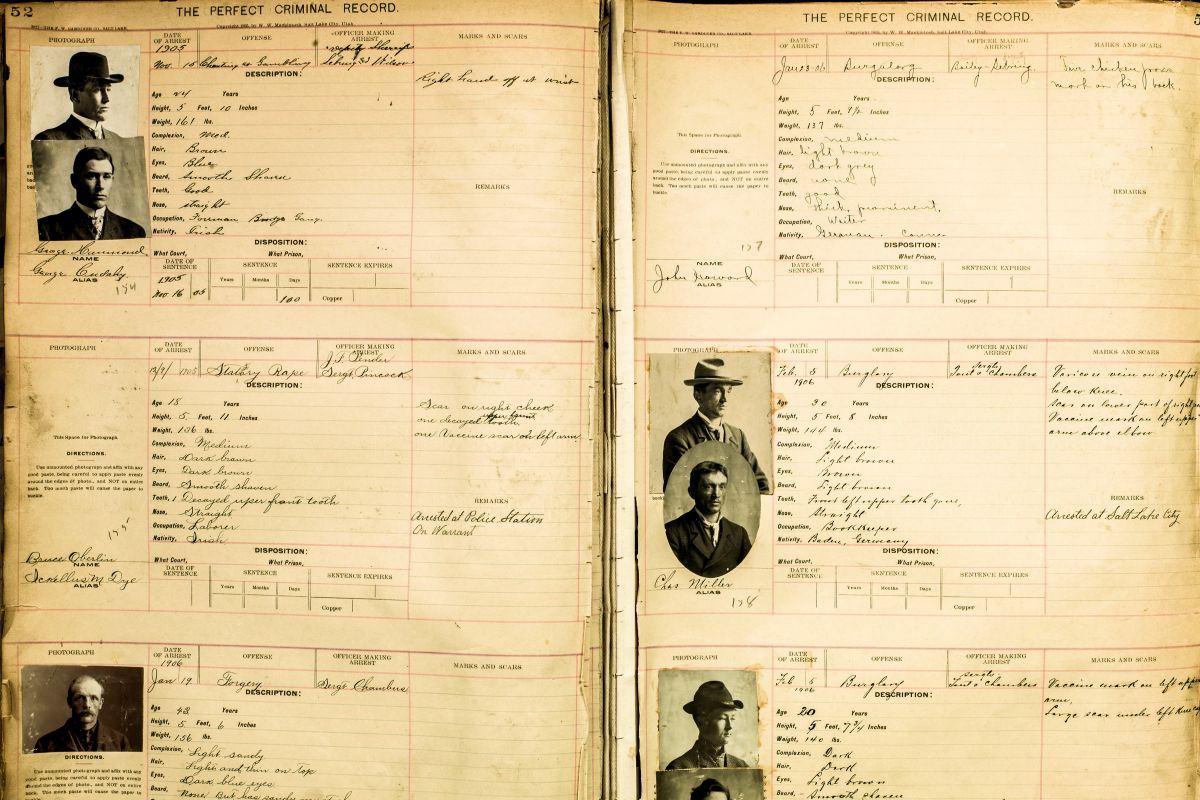 52
THE PERFECT CRIMINAL RECORD.
Copyright 1905, by W. W. Mackintosh, Salt Lake City, Utah.
PHOTOGRAPH
DATE OF ARREST
OFFENSE
OFFICER MAKING ARREST
MARKS AND SCARS
1905
Nov. 15 Cheating at Gambling
Deputy Sheriff
Right hand off at wrist
DESCRIPTION:
Age 24 Years
Height, 5 Feet, 10 Inches
Weight, 161 lbs.
Complexion, Med.
Hair, Brown
Eyes, Blue
Beard, Smooth Shaved
Teeth, Good
Nose, straight
Occupation, Forman Bridge Gang.
Nativity, Irish
REMARKS
DISPOSITION:
What Court, What Prison,
George Hammond
NAME
George Cudahy
ALIAS
DATE OF SENTENCE
SENTENCE
SENTENCE EXPIRES
Years Months Days
1905
Nov 16 05
100
Copper
PHOTOGRAPH
DATE OF ARREST
OFFENSE
OFFICER MAKING ARREST
MARKS AND SCARS
12/9/1905 Statury Rape
J. F. Pender
Sergt. Pincock
DESCRIPTION:
Age 18 Years
Height, 5 Feet, 11 Inches
Weight, 136 lbs.
Complexion, Medium
Hair, Dark brown
Eyes, Dark brown
Beard, Smooth shaven
Teeth, 1 Decayed uper front tooth
Nose, Straight
Occupation, Laborer
Nativity, Irish
Scar on right cheek
upper front
one decayed tooth
one Vaccine scar on left arm
This Space for Photograph.
DIRECTIONS.
Use unmounted photograph and affix with any good paste, being careful to apply paste evenly around the edges of photo., and NOT on entire back. Too much paste will cause the paper to buckle.
REMARKS
Arrested at Police Station
On Warrant
DISPOSITION:
What Court, What Prison,
155
Bruce Oberlin
NAME
Dye
ALIAS
DATE OF SENTENCE
SENTENCE
SENTENCE EXPIRES
Years Months Days
Copper
PHOTOGRAPH
DATE OF ARREST
OFFENSE
OFFICER MAKING ARREST
MARKS AND SCARS
1906
Jan 19 Forgery Sergt Chambers
DESCRIPTION:
Age 42 Years
Height, 5 Feet, 6 Inches
Weight, 156 lbs.
Complexion, Light sandy
Hair, Light and thin on top
Eyes, Dark blue eyes
Beard, None But has sandy
DIRECTIONS.
Use unmounted photograph and affix with any good paste, being careful to apply paste evenly around the edges of photo., and NOT on entire back. Too much paste will cause the paper to
THE PERFECT CRIMINAL RECORD.
Copyright 1905, by W. W. Mackintosh, Salt Lake City, Utah.
PHOTOGRAPH
DATE OF ARREST
OFFENSE
OFFICER MAKING ARREST
MARKS AND SCARS
Jan 23-06 Burgalary Bailey-Sebring.
chicken pox
mark on his back.
DESCRIPTION:
Age Years
Height, 5 Feet, 7½ Inches
Weight, 137 lbs.
Complexion, medium
Hair, light brown
Eyes, dark grey
Beard, none
Teeth, good
Nose, thick, prominent.
Occupation, Waiter
Nativity, German
This Space for Photograph.
DIRECTIONS.
Use unmounted photograph and affix with any good paste, being careful to apply paste evenly around the edges of photo., and NOT on entire back. Too much paste will cause the paper to buckle.
REMARKS
DISPOSITION:
What Court, What Prison,
157
NAME
John Howard
ALIAS
DATE OF SENTENCE
SENTENCE
SENTENCE EXPIRES
Years Months Days
Copper
PHOTOGRAPH
DATE OF ARREST
OFFENSE
OFFICER MAKING ARREST
MARKS AND SCARS
Feb. 5
1906
Burglary
Sergts
Chambers
Varicose vein on right foot
below knee.
Scar on lower part of right
Vaccine mark on left upper
arm above elbow
DESCRIPTION:
Age 30 Years
Height, 5 Feet, 8 Inches
Weight, 144 lbs.
Complexion, Medium
Hair, Light brown
Eyes, Brown
Beard, Light brown
Teeth, Front left upper tooth gone,
Nose, Straight
Occupation, Bookkeeper
Nativity, Baden, Germany
REMARKS
Arrested at Salt Lake City
DISPOSITION:
What Court, What Prison,
Chas Miller
ALIAS
158
DATE OF SENTENCE
SENTENCE
SENTENCE EXPIRES
Years Months Days
Copper
PHOTOGRAPH
DATE OF ARREST
OFFENSE
OFFICER MAKING ARREST
MARKS AND SCARS
Feb 5
1906
Burglary
Sergts
Chambers
Vaccine mark on left upper
arm,
Large scar under left Knee
DESCRIPTION:
Age 20 Years
Height, 5 Feet, 7 3/4 Inches
Weight, 140 lbs.
Complexion, Dark
Hair, Dark
Eyes, Light brown
Beard, Smooth shaven